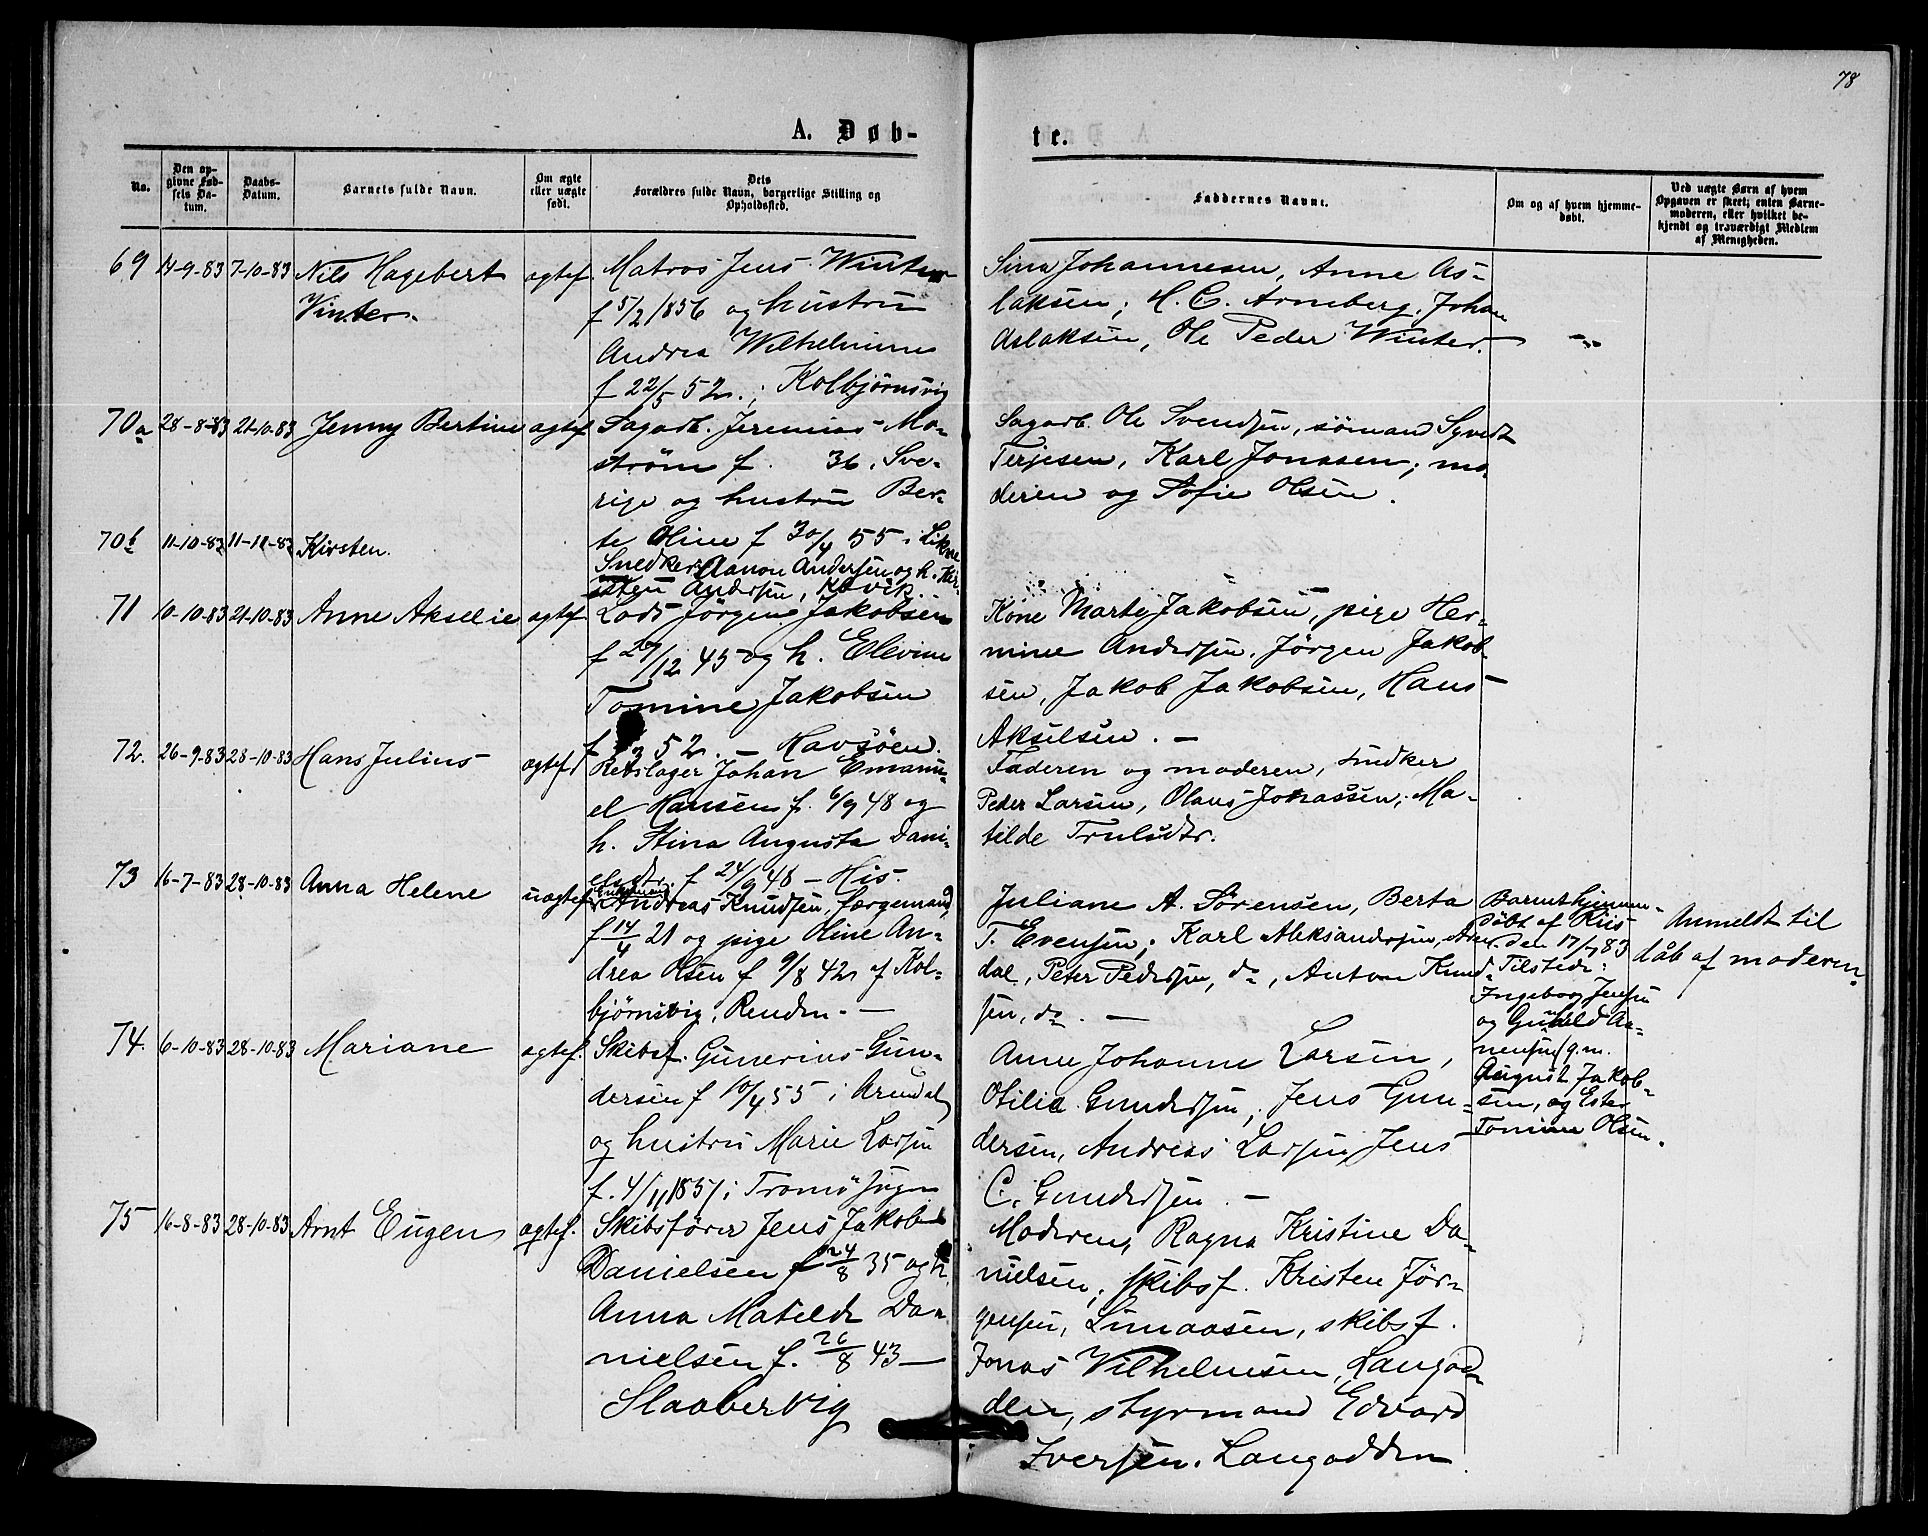 78
A. Døb-
te.
No.
Den op-
givne Fød-
sels Da-
tum.
Daabs-
Datum.
Barnets fulde Navn.
Om ægte
eller uægte
født.
Dets
Forældres fulde Navn, borgerlige Stilling og
Opholdssted.
Faddernes Navne.
Om og af hvem hjemme-
døbt.
Ved uægte Børn af hvem
Opgaven er skeet; enten Barne-
moderen, eller hvilket be-
kjendt og troværdigt Medlem
af Menigheden.
69 14-9-83 7-10-83 Nils Hagebert
Vinter.
ægtef.
Matros Jens Winter
f 5/2 1856 og hustru
Andrea Wilhelmine
f 22/5 52.; Kolbjørnsvig
Sina Johannesen, Anne As-
laksen; H. C. Arneberg, Johan
Aslaksen, Ole Peder Winter.
70a 28-8-83 21-10-83 Jenny Bertine ægtef
Sagarb. Jeremias Mo-
strøm f. 36, Sve-
rige og hustru Ber-
te Oline f 30/4 55.
Sagarb. Ole Svendsen, sömand Syvert
Terjesen, Karl Jonassen; mo-
deren og Sofie Olsen.
70b 11-10-83 11-11-83 Kirsten.
Snedker Aanon Andersen og h. Kir-
sten Andersen,
71 10-10-83 21-10-83 Anne Akselie ægtef
Lods Jørgen Jakobsen
f 27/12 45 og h. Elevine
Tomine Jakobsen
52. — Havsöen.
Kone Marte Jakobsen, pige Her-
mine Andersen, Jörgen Jakob-
sen, Jakob Jakobsen, Hans
Akselsen. —
72. 26-9-83 28-10-83 Hans Julius ægtef
Rebslager Johan Emanu-
el Hansen f. 6/9 48 og
h. Stina Augusta Dani-
elsdtr. f 24/9 48 — His.
Faderen og moderen, snedker
Peder Larsen, Olaus Jonassen, Ma-
tilde Trulsdtr.
73 16-7-83 28-10-83 Anna Helene uægtef
Andreas Knudsen, færgemand,
f 14/4 21 og pige Oline An-
drea Olsen f 9/8 42 af Kol-
bjørnsvig, Renden. —
Juliane A. Sörensen, Berta
T. Evensen; Karl Aleksandersen, Aren-
dal, Peter Pedersen, do, Anton Knud-
sen, do. —
Barnet hjemme-
döbt af Kris
den 17/7 83
Tilstede:
Ingeborg Jensen
og Gunild Aa-
nensen g.m.
August Jakob-
sen, og Ester
Tomine Olsen.
Anmeldt til
dåb af moderen.
74. 6-10-83 28-10-83 Mariane ægtef.
Skibsf. Gunerius Gun-
dersen f 10/4 55 i Arendal
og hustru Marie Larsen
f. 4/11 1857 i Tromö Sogn
Anne Johanne Larsen,
Otilia Gundersen, Jens Gun-
dersen, Andreas Larsen, Jens
C. Gundersen. —
75 16-8-83 28-10-83 Arnt Eugen ægtef.
Skibsförer Jens Jakob
Danielsen f 24/8 35 og h.
Anna Matilde Da-
nielsen f. 26/8 43 —
Slaabervig
Moderen, Ragna Kristine Da-
nielsen; skibsf. Kristen Jör-
gensen, Limaasen, skibsf.
Jonas Vilhelmsen, Langod-
den, styrmand Edvard
Iversen, Langodden